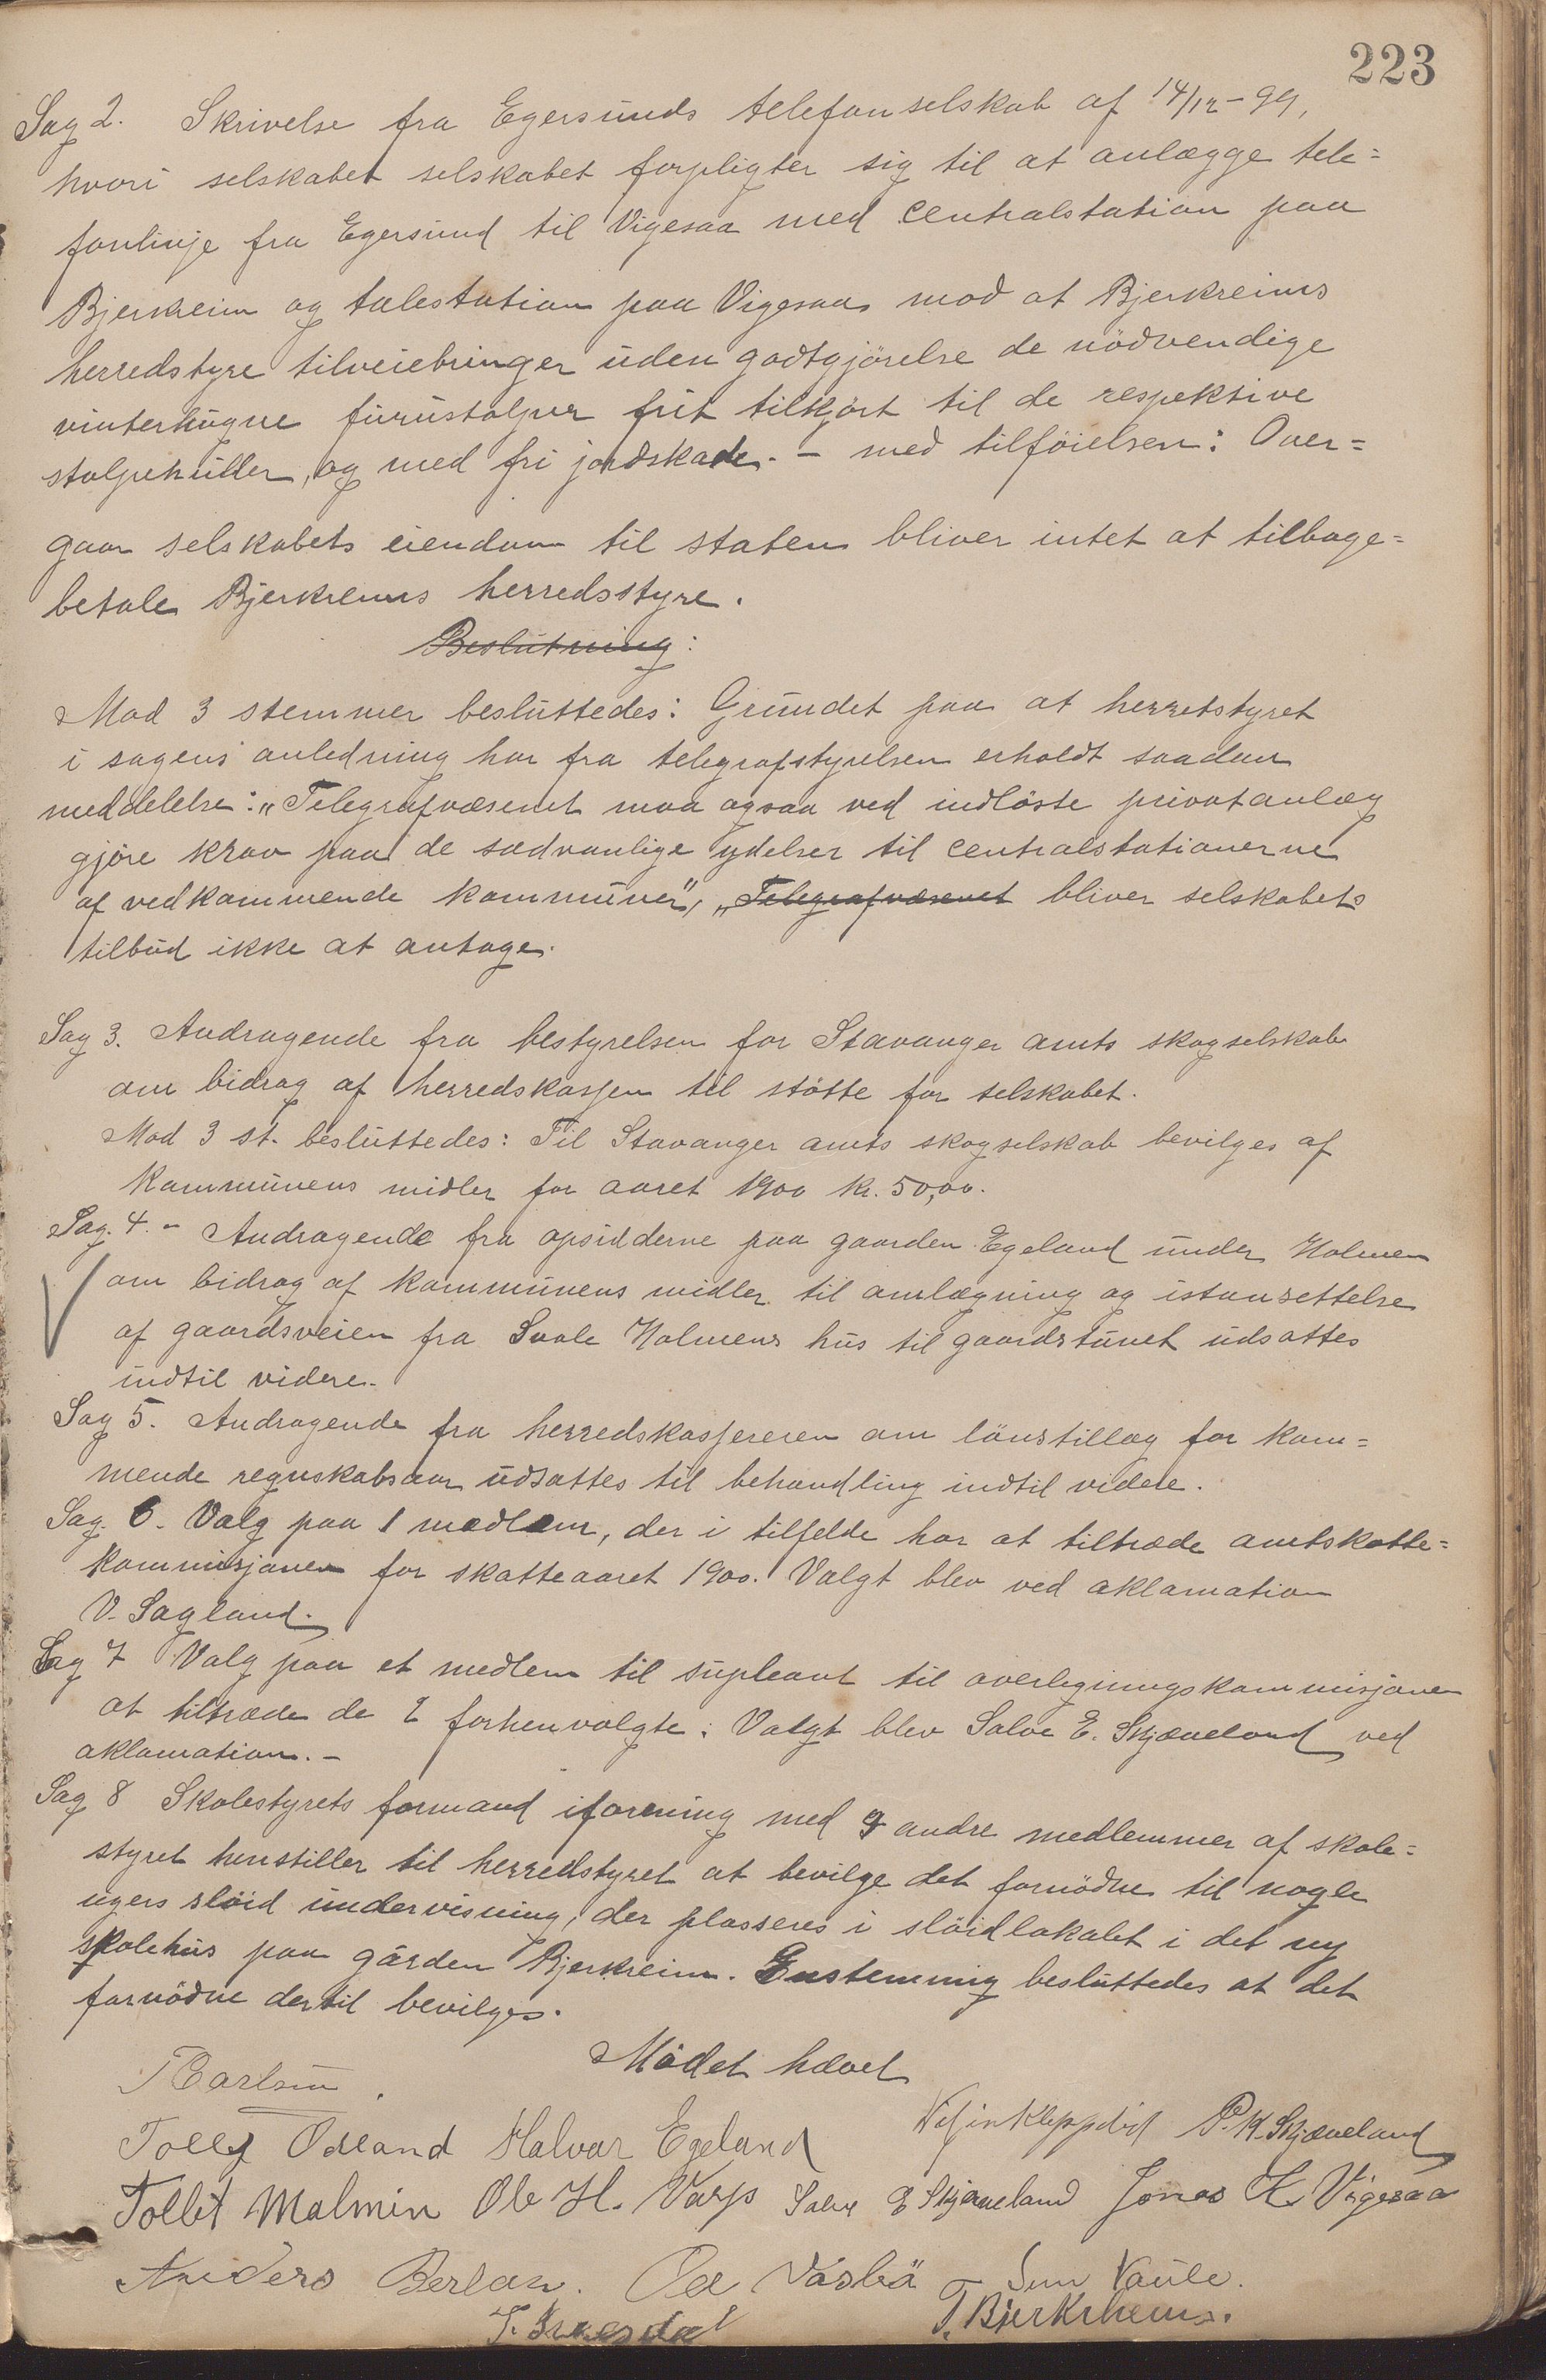 223
Sag 2. Skrivelse fra Egersunds telefonselskab af 14/12-99,
hvori selskabet selskabet forpligter sig til at anlægge tele=
fonlinje fra Egersund til Vigesaa med centralstation paa
Bjerkreim og talestation paa Vigesaa mod at Bjerkreims
herredstyre tilveiebringer uden godtgjörelse de nödvendige
vinterhugne furustolper frit tilkjört til de respektive
stolpehuller, og med fri jordskade. - med tilföielsen: Over=
gaar selskabets eiendom til staten bliver intet at tilbage=
betale Bjerkreims herredsstyre.
Beslutning:
Mod 3 stemmer besluttedes: Grundet paa at herretstyret
i sagens anledning har fra telegrafstyrelsen erholdt saadan
meddelelse: "Telegrafvæsenet maa ogsaa ved indlöste privatanlæg
gjöre krav paa de sædvanlige ydelser til centralstationerne
af vedkommende kommuner", "Telegrafvæsenet bliver selskabets
tilbud ikke at antage.
Sag 3. Andragende fra bestyrelsen for Stavanger amts skogselskab
om bidrag af herredskassen til stötte for selskabet.
Mod 3 st. besluttedes: Til Stavanger amts skogselskab bevilges af
kommunens midler for aaret 1900 kr. 50,00.
Sag. 4. - Andragende fra opsidderne paa gaarden Egeland under Holmen
om bidrag af kommunens midler til omlægning og istandsettelse
af gaardsveien fra Svale Holmens hus til gaardstunet udsattes
indtil videre.
Sag 5. Andragende fra herredskassereren om lönstillæg for kom=
mende regnskabsaar udsattes til behandling indtil videre.
Sag. 6. Valg paa 1 medlem, der i tilfelde har at tiltræde amtskatte=
kommisjonen for skatteaaret 1900. Valgt blev ved aklamation
V. Sagland.
Sag 7 Valg paa et medlem til supleant til overligningskommisjonen
at tiltræde de 2 forhenvalgte: Valgt blev Salve E. Skjæveland ved
aklamation. -
Sag 8 Skolestyrets formand iforening med 9 andre medlemmer af skole=
styret henstiller til herredstyret at bevilge det fornödne til nogle
ugers slöid undervisning, der plasseres i slöidlokalet i det ny
skolehus paa gården Bjerkreim. Enstemmig besluttedes at det
fornödne dertil bevilges.
Mödet hævet
T Carlsen.
Tollef Odland Halvar Egeland P. K. Skjæveland
Tollef Malmin Ole H. Varp Salve E Skjæveland Jonas K. Vigesaa
Anders Berland. Ole Vasbö Sven Vaule.
T. Bjerkrheim.